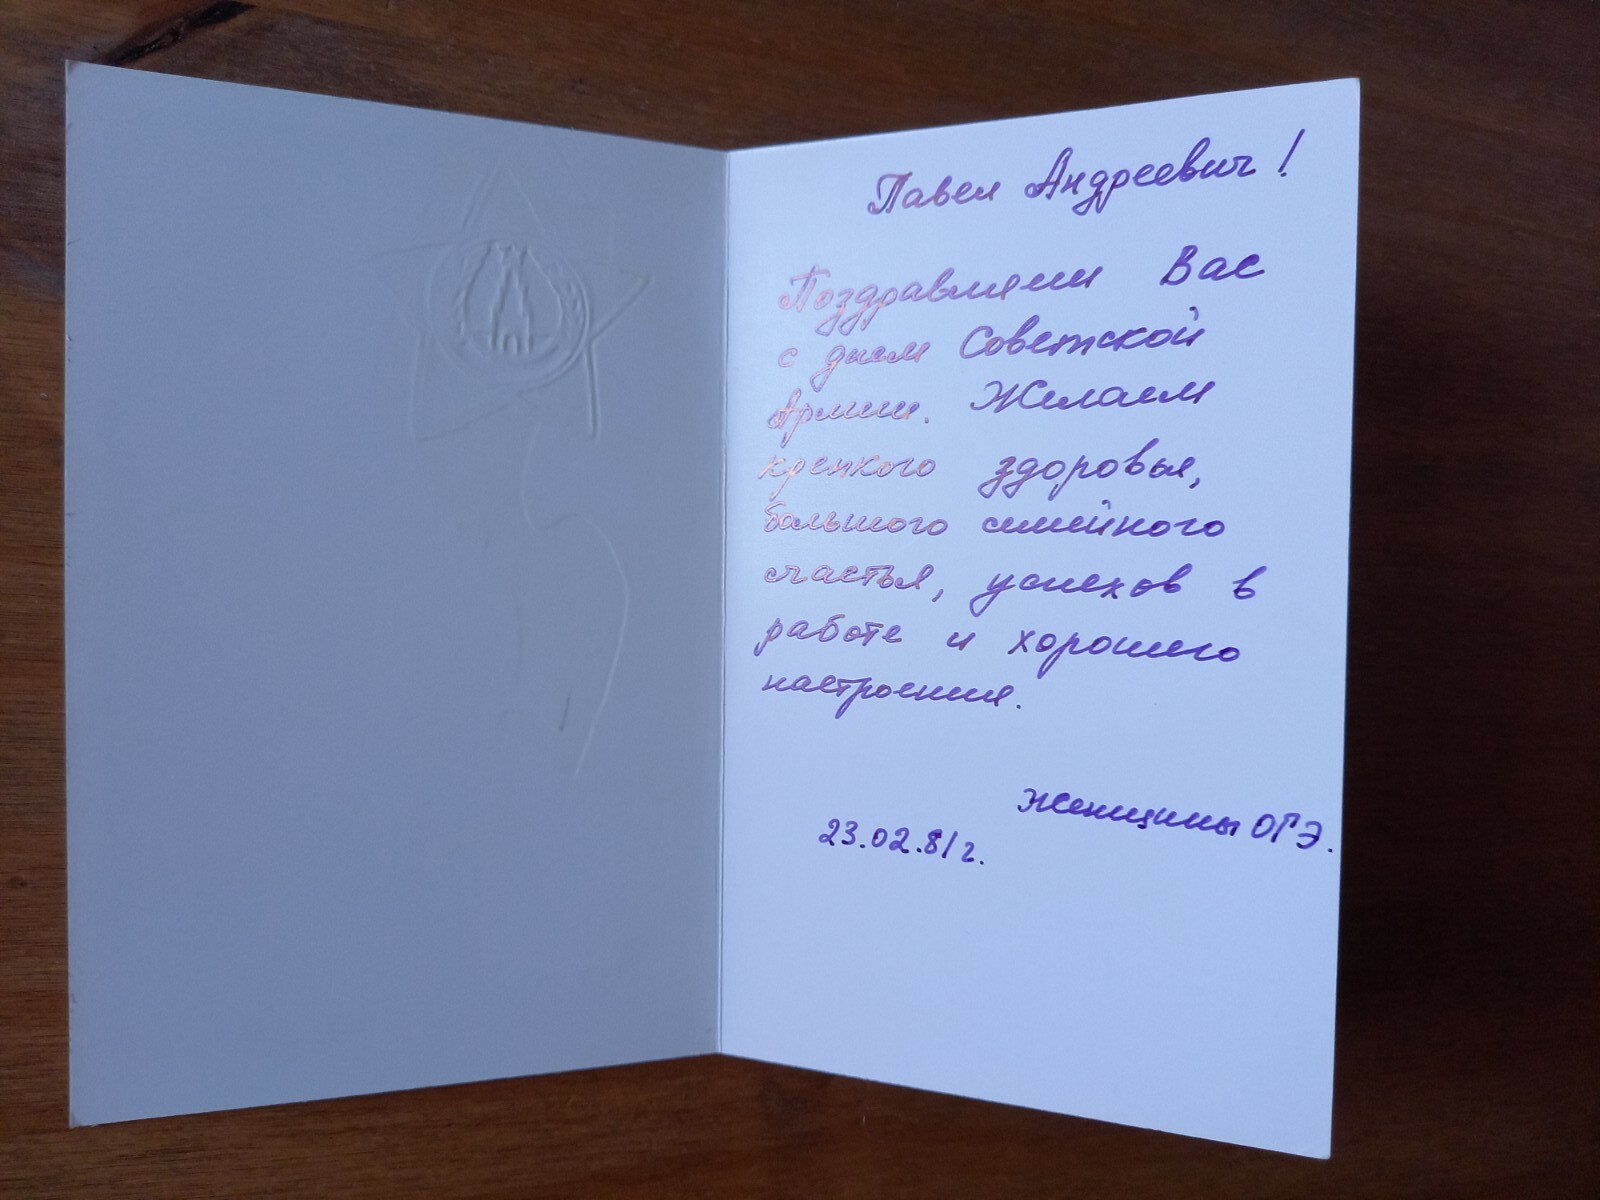 Павел Андреевич!
Поздравляем Вас
с днем Советской
Армии. Желаем
крепкого здоровья,
большого семейного
счастья, успехов в
работе и хорошего
настроения.
Женщины ОГЭ.
23.02.81г.